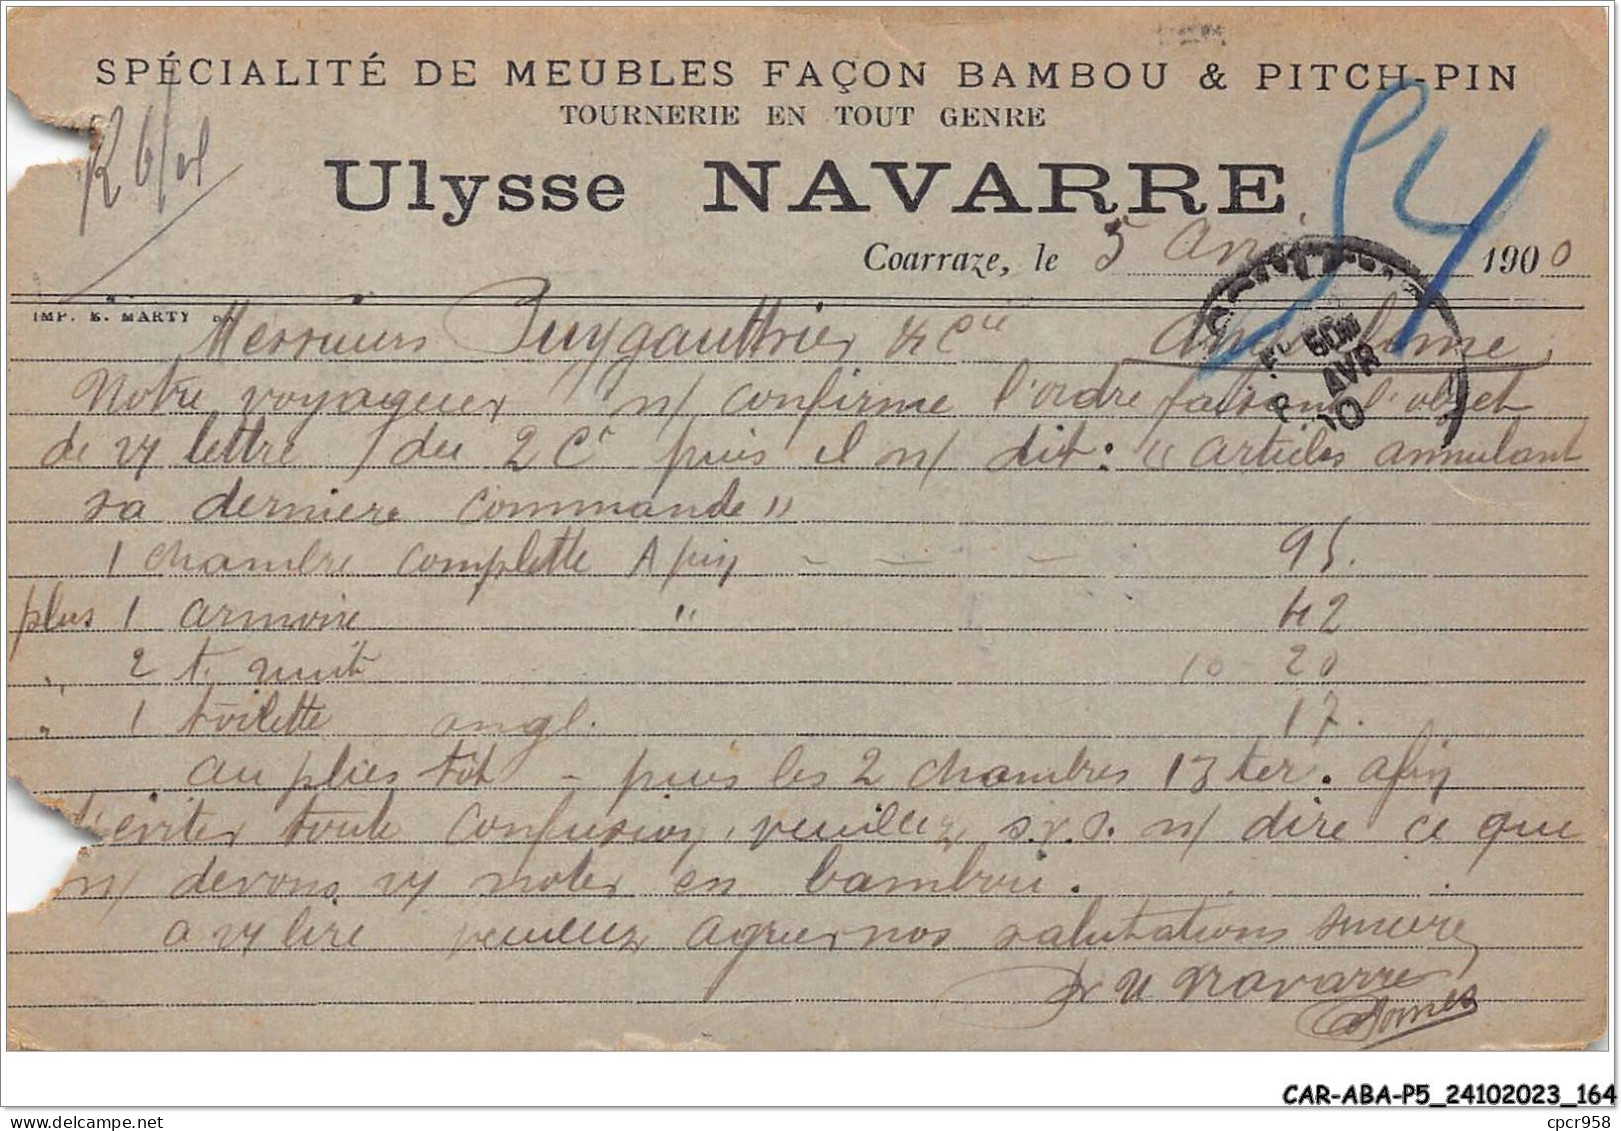 SPÉCIALITÉ DE MEUBLES FAÇON BAMBOU & PITCH-PIN
TOURNERIE EN TOUT GENRE
R 6/4
54
Ulysse NAVARRE
Coarraze, le 5 Avr. 1900
IMP. E. MARTY
Messieurs Puygauthier & Cie Angoulême
AVR
Notre voyageur n/ confirme l'ordre faisant l'objet
de v/ lettre du 2 Ct puis il n/ dit : "articles annulant
sa derniere commande"
1 chambre complette A pin - - - 95.
plus 1 armoire " 42
" 2 t. nuit 10 - 20
" 1 toilette angl. 17.
au plus tôt - puis les 2 chambres 13 ter. afin
d'éviter toute confusion, veuillez s.v.p. n/ dire ce que
n/ devons v/ noter en bambou.
a v/ lire veuillez agreer nos salutations sincères
Pr U Navarre
CAR-ABA-P5_24102023_164
cpcr958